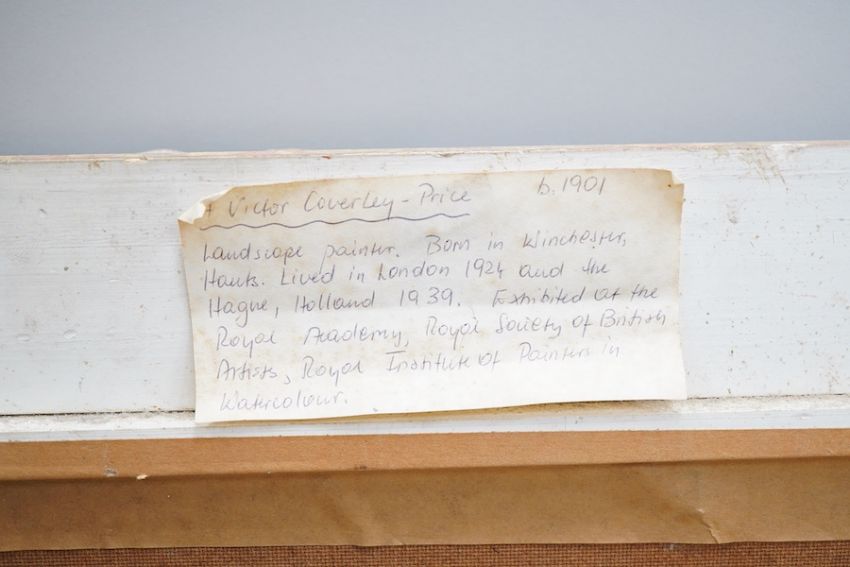 A Victor Coverley-Price b. 1901
Landscape painter. Born in Winchester,
Hants. Lived in London 1924 and the
Hague, Holland 1939. Exhibited at the
Royal Academy, Royal Society of British
Artists, Royal Institute of Painters in
Watercolour.